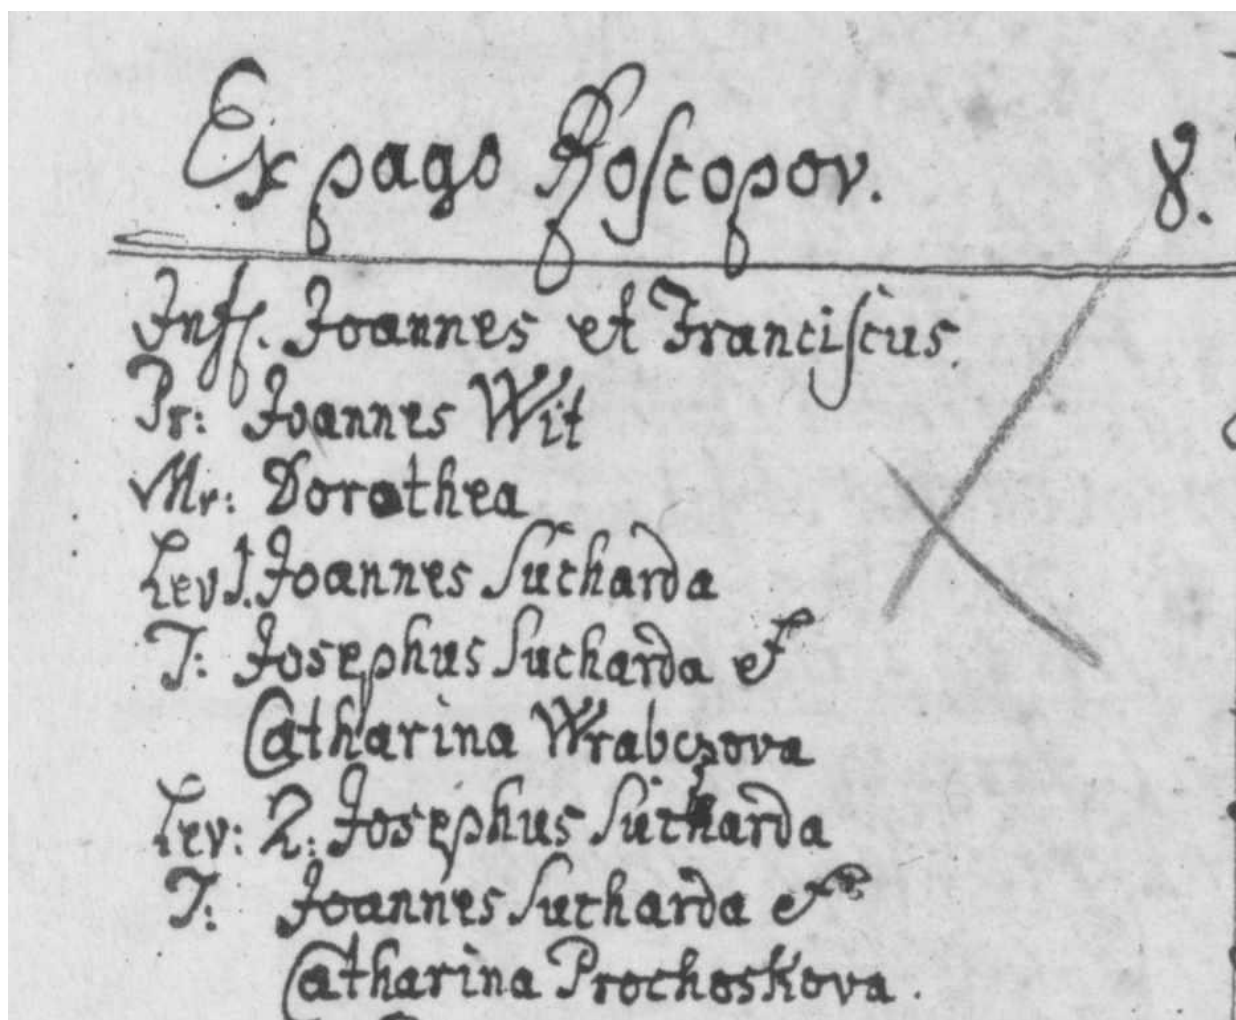 Ex pago Roscopov. 8.
Inff. Joannes et Franciscus.
Pr: Joannes Wit
Mr: Dorothea
Lev 1. Joannes Sucharda
T: Josephus Sucharda et
Catharina Wrabczova
Lev: 2: Josephus Sucharda
T: Joannes Sucharda et
Catharina Prochoskova.